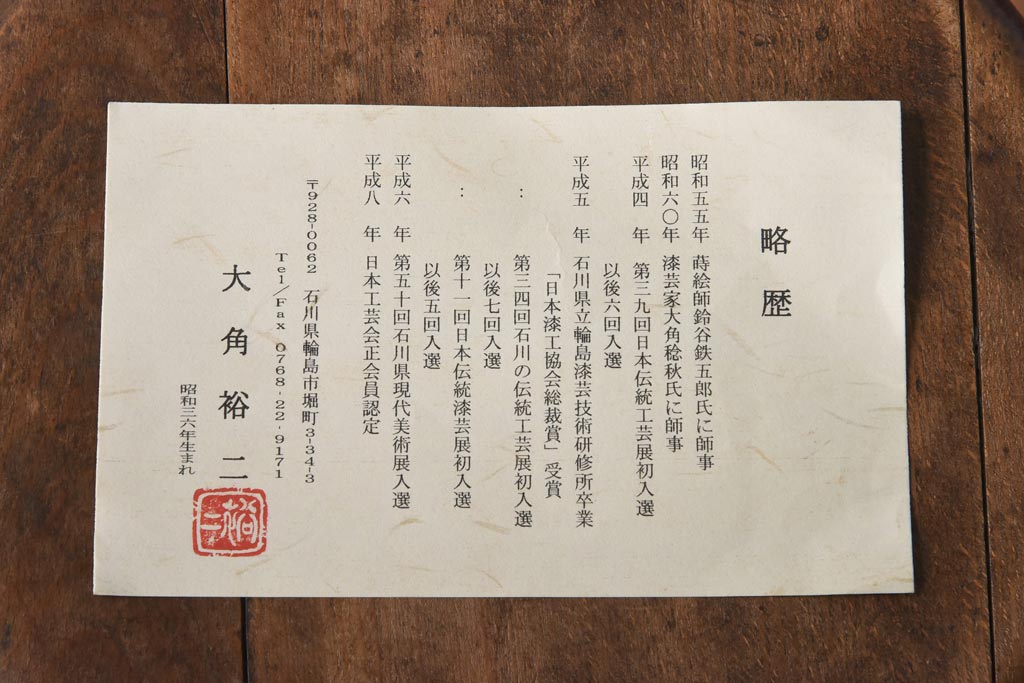 略歴
昭和五五年 蒔絵師鈴谷鉄五郎氏に師事
昭和六〇年 漆芸家大角稔秋氏に師事
平成四 年 第三九回日本伝統工芸展初入選
以後六回入選
平成五 年 石川県立輪島漆芸技術研修所卒業
「日本漆工協会総裁賞」受賞
： 第三四回石川の伝統工芸展初入選
以後七回入選
： 第十一回日本伝統漆芸展初入選
以後五回入選
平成六 年 第五十回石川県現代美術展入選
平成八 年 日本工芸会正会員認定
〒928-0062 石川県輪島市堀町3-34-3
Tel／Fax 0768-22-9171
大角裕二
昭和三六年生まれ
裕二